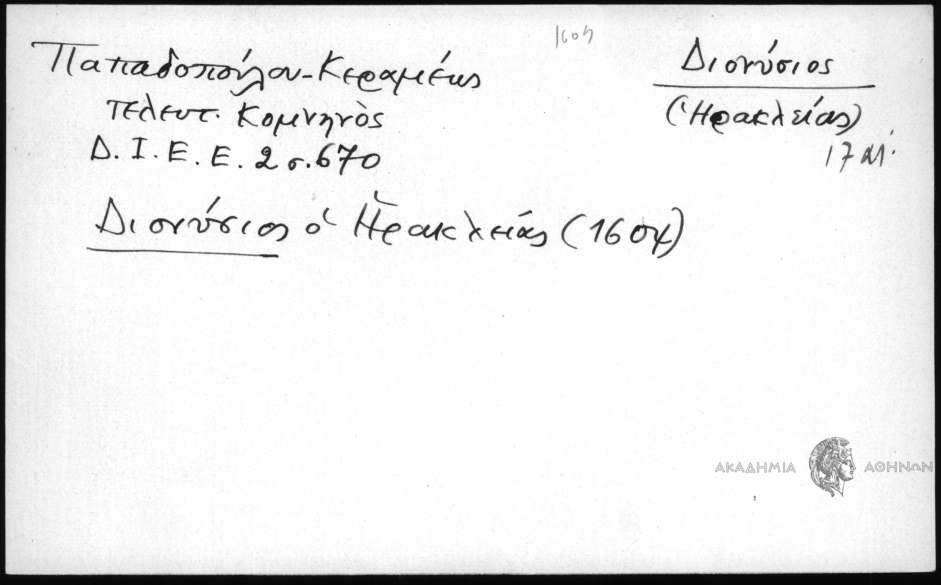 1604
Διονύσιος
(Ἡρακλείας)
17 αἰ.
Παπαδοπούλου-Κεραμέως
τελευτ. Κομνηνὸς
Δ. Ι. Ε. Ε. 2 σ. 670
Διονύσιος ὁ Ἡρακλείας (1604)
ΑΚΑΔΗΜΙΑ ΑΘΗΝΩΝ